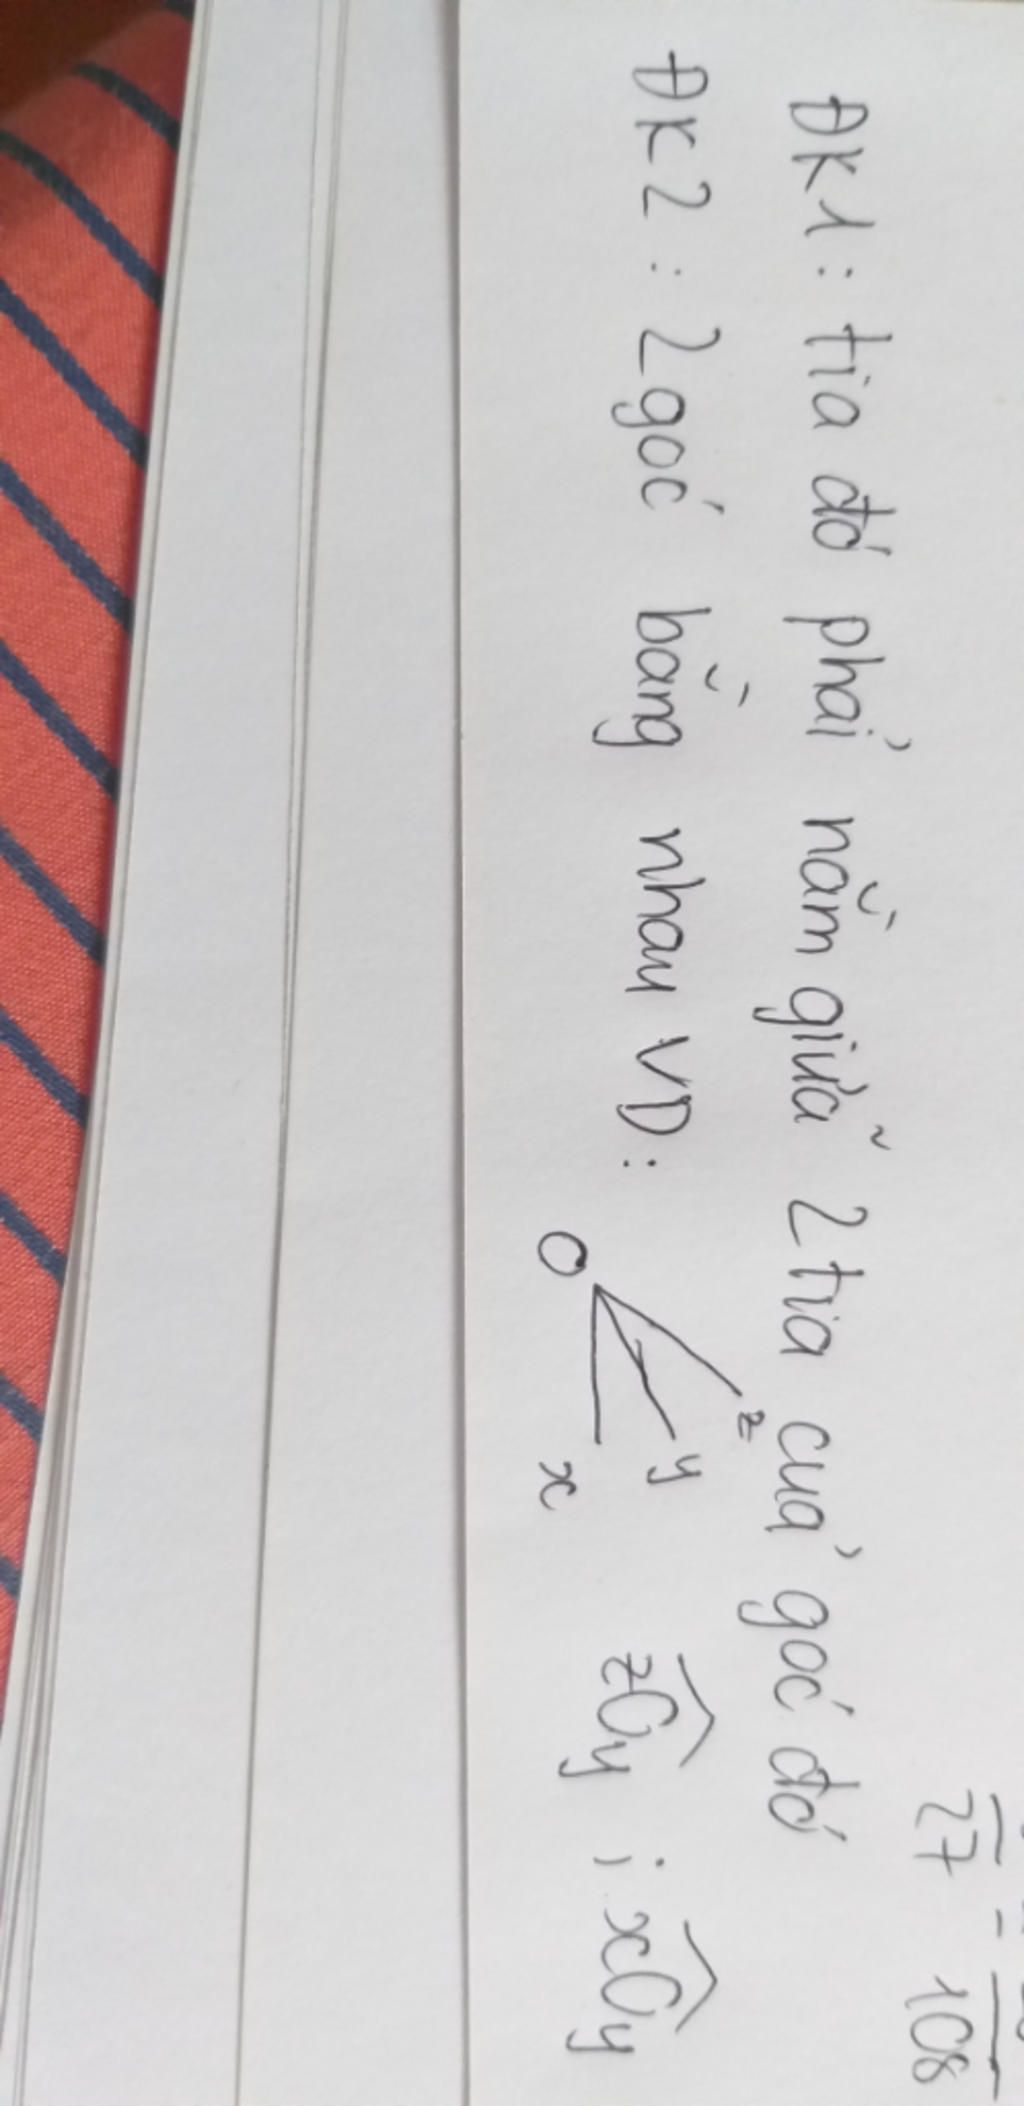 27 108
ĐK1: tia đó phải nằm giữa 2 tia của góc đó
ĐK2: 2 góc bằng nhau VD:
O z y x
zOy ; xOy